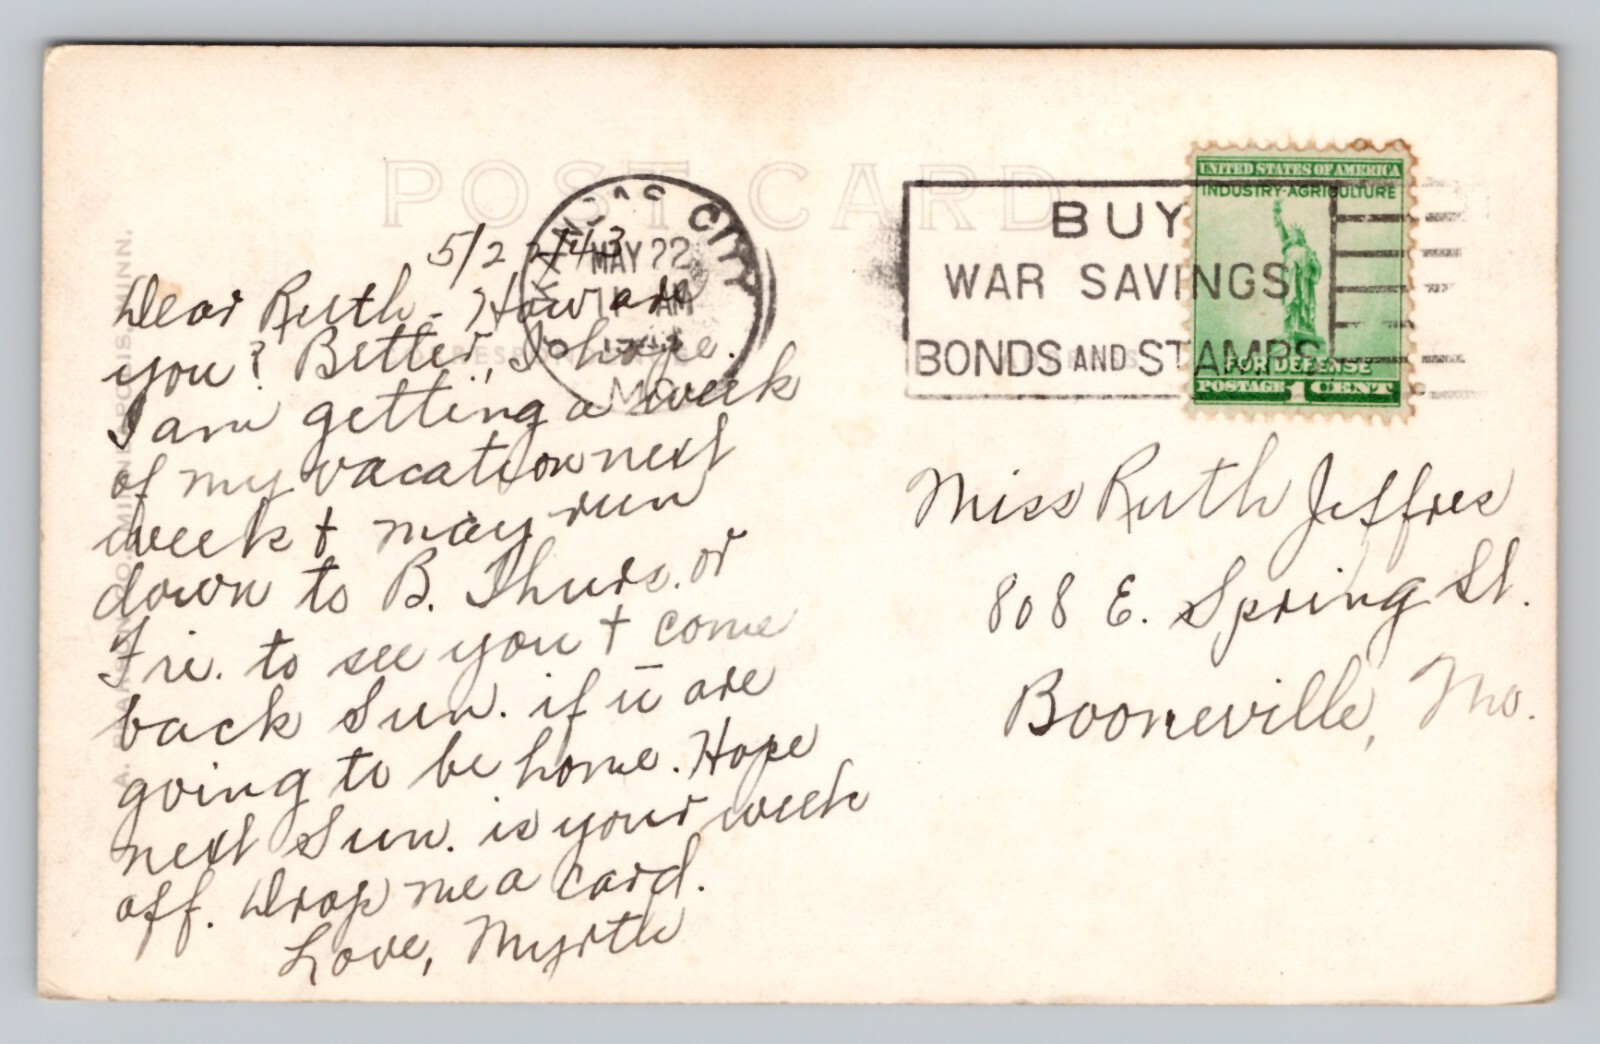 POST CARD
5/22/43
Dear Ruth - How are
you? Better, I hope.
I am getting a week
of my vacation next
week & may run
down to B. Thurs. or
Fri. to see you & come
back Sun. if u are
going to be home. Hope
next Sun. is your week
off. Drop me a card.
Love, Myrtle
KANSAS CITY
MAY 22
AM
1943
MO.
BUY
WAR SAVINGS
BONDS AND STAMPS
UNITED STATES OF AMERICA
INDUSTRY·AGRICULTURE
FOR DEFENSE
POSTAGE 1 CENT
Miss Ruth Jeffres
808 E. Spring St.
Booneville, Mo.
MINN.